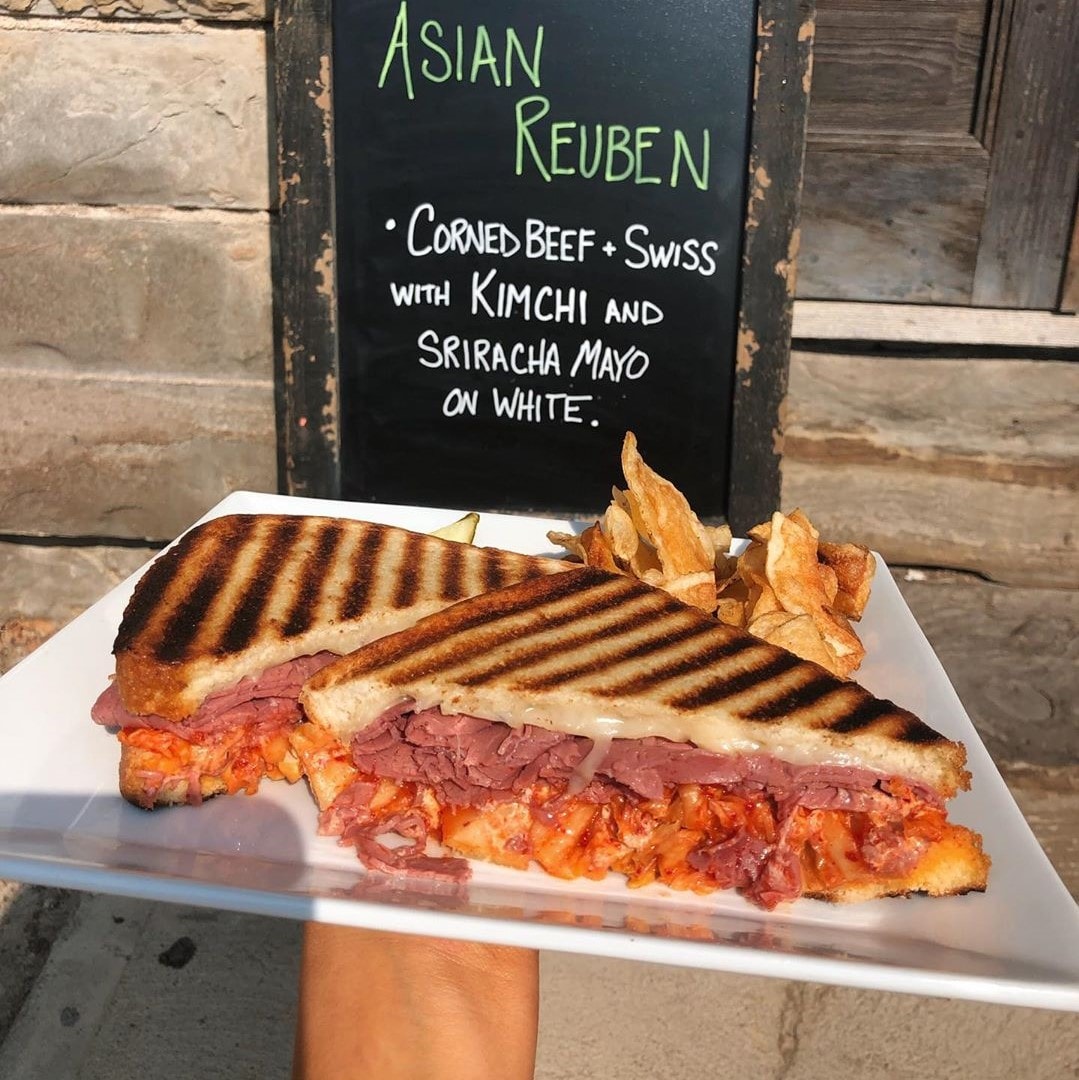 ASIAN
REUBEN
• CORNED BEEF + SWISS
WITH KIMCHI AND
SRIRACHA MAYO
ON WHITE.